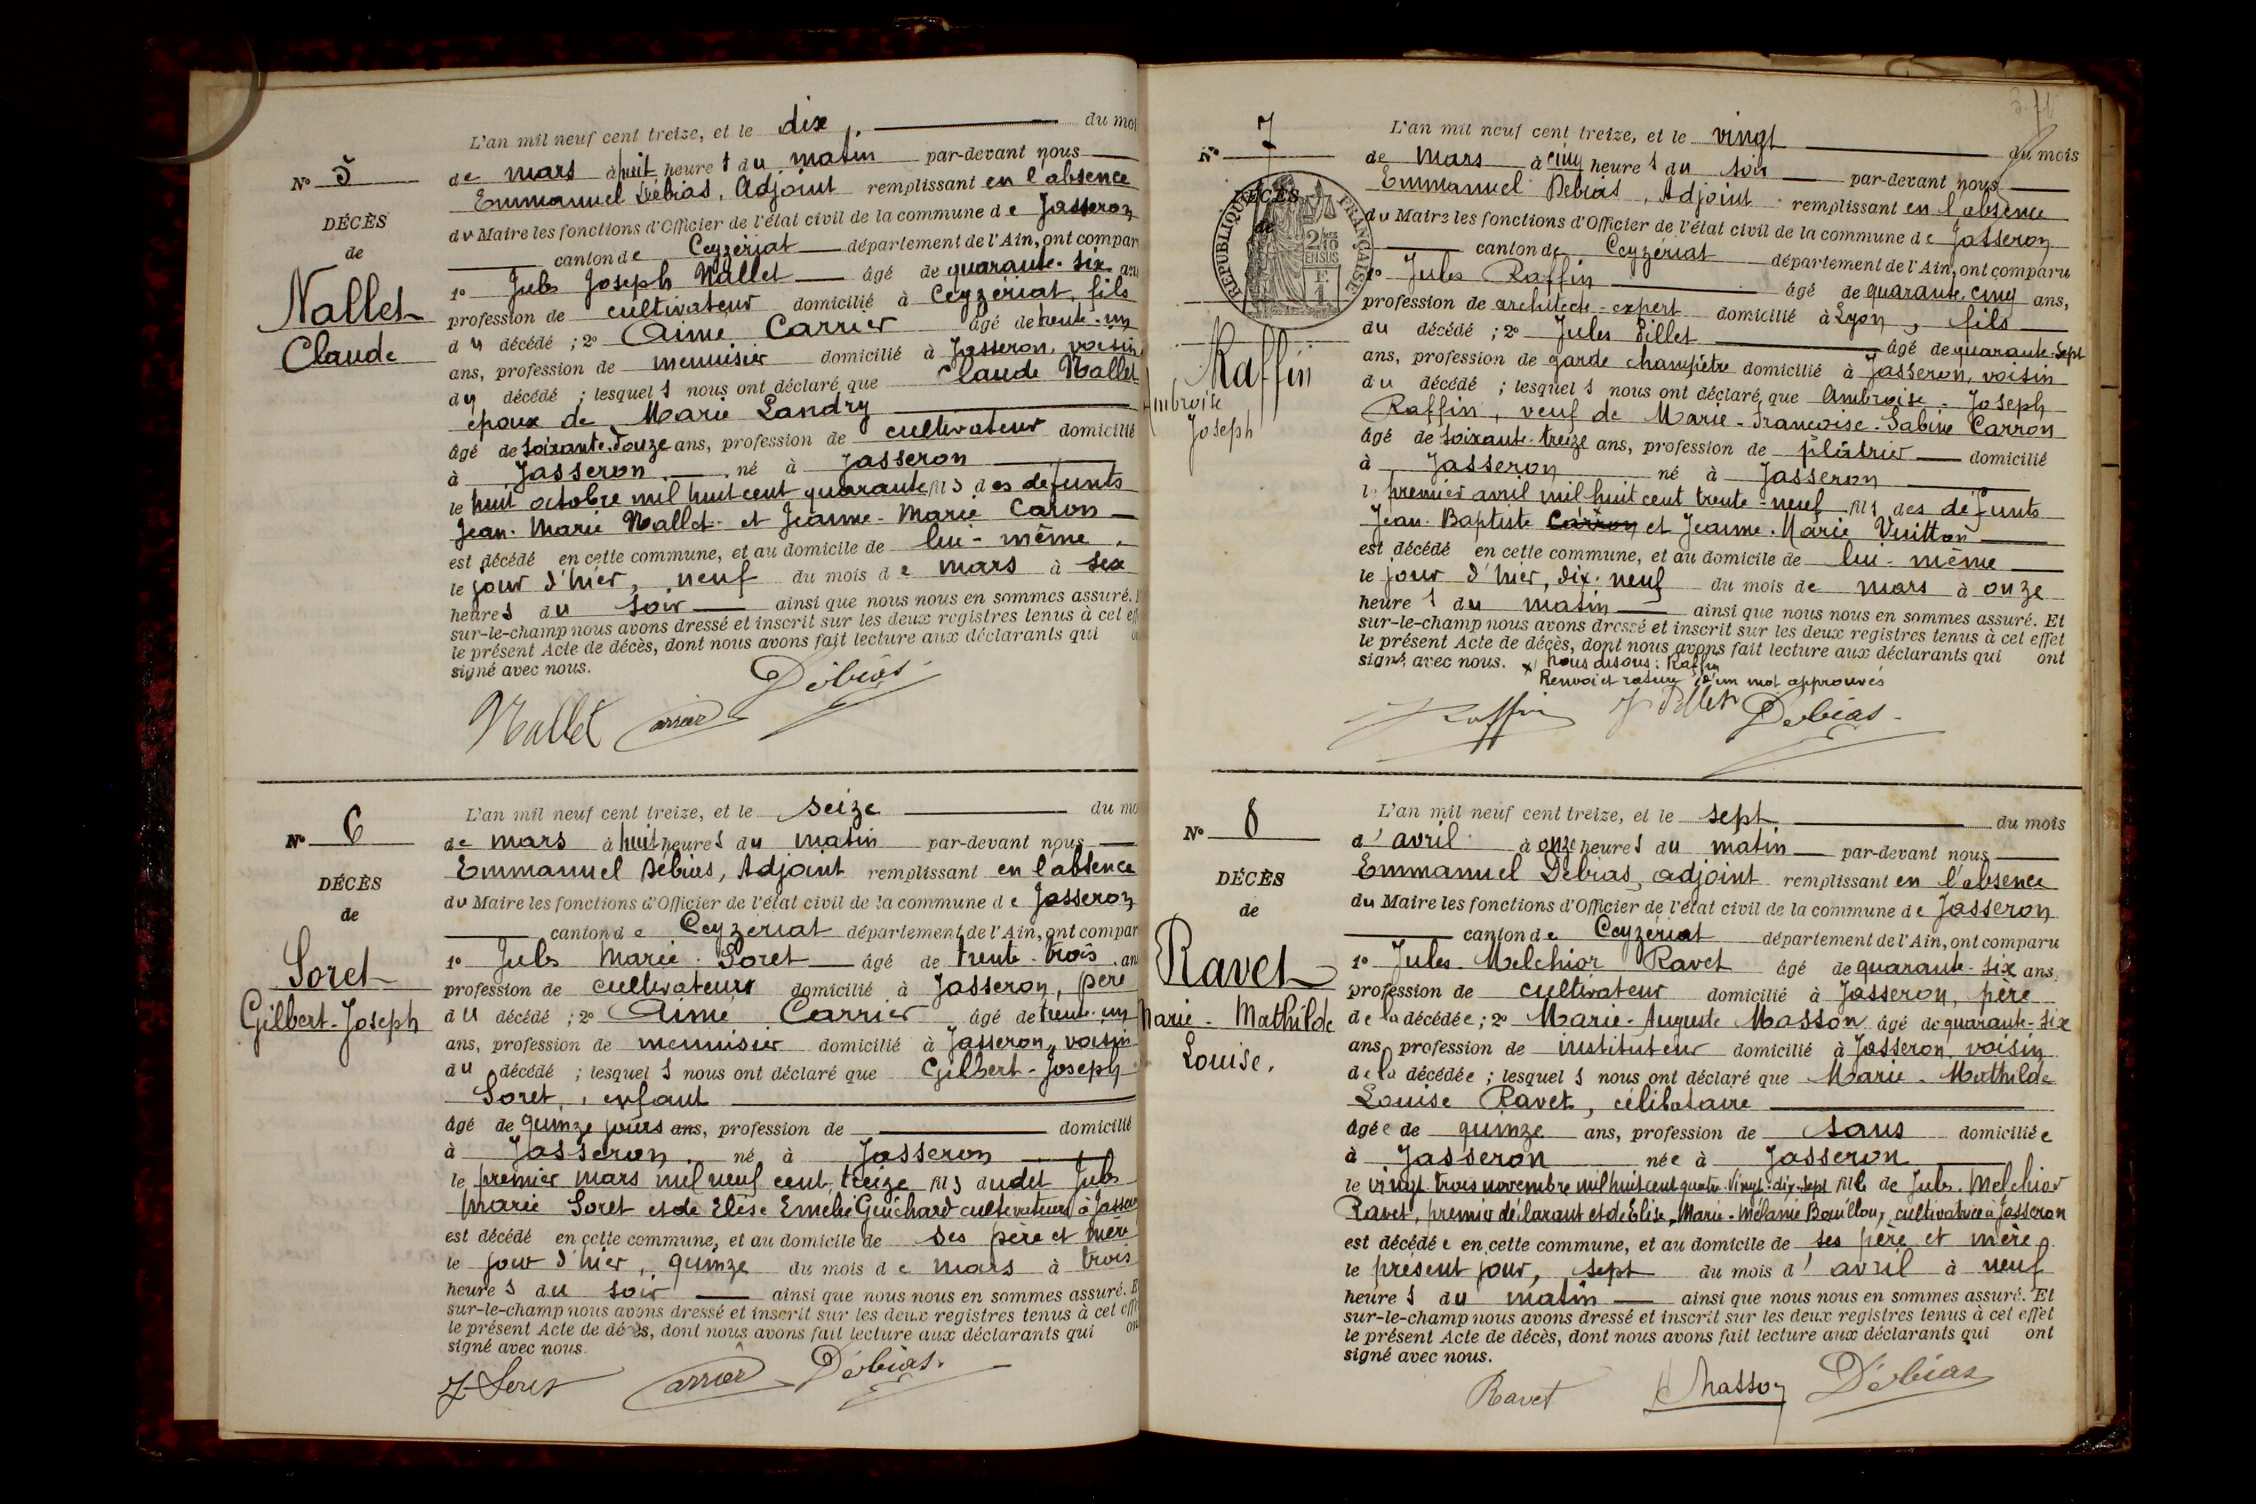 N° 5
DÉCÈS
de
Nallet
Claude
L'an mil neuf cent treize, et le dix, du moi
de mars à huit heures du matin par-devant nous
Emmanuel Débias, Adjoint remplissant en l'absence
du Maire les fonctions d'Officier de l'état civil de la commune de Jasseron
canton de Ceyzériat département de l'Ain, ont compar
1° Jules Joseph Nallet âgé de quarante-six an
profession de cultivateur domicilié à Ceyzériat, fils
du décédé ; 2° Aimé Carrier âgé de trente-un
ans, profession de menuisier domicilié à Jasseron, voisin
du décédé ; lesquels nous ont déclaré que Claude Nallet
époux de Marie Landry
âgé de soixante-douze ans, profession de cultivateur domicilié
à Jasseron né à Jasseron
le huit octobre mil huit cent quarante fils des défunts
Jean-Marie Nallet et Jeanne-Marie Caron
est décédé en cette commune, et au domicile de lui-même
le jour d'hier, neuf du mois de mars à six
heures du soir ainsi que nous nous en sommes assuré.
sur-le-champ nous avons dressé et inscrit sur les deux registres tenus à cet eff
le présent Acte de décès, dont nous avons fait lecture aux déclarants qui
signé avec nous.
Nallet Carrier Débias
N° 6
DÉCÈS
de
Soret
Gilbert-Joseph
L'an mil neuf cent treize, et le seize du mo
de mars à huit heures du matin par-devant nous
Emmanuel Débias, Adjoint remplissant en l'absence
du Maire les fonctions d'Officier de l'état civil de la commune de Jasseron
canton de Ceyzériat département de l'Ain, ont compar
1° Jules Marie Soret âgé de trente-trois an
profession de cultivateur domicilié à Jasseron, père
du décédé ; 2° Aimé Carrier âgé de trente-un
ans, profession de menuisier domicilié à Jasseron, voisin
du décédé ; lesquels nous ont déclaré que Gilbert-Joseph
Soret, enfant
âgé de quinze jours ans, profession de domicilié
à Jasseron né à Jasseron
le premier mars mil neuf cent treize fils dudit Jules
Marie Soret et de Elise Emélie Guichard cultivateurs à Jasseron
est décédé en cette commune, et au domicile de ses père et mère
le jour d'hier, quinze du mois de mars à trois
heures du soir ainsi que nous nous en sommes assuré. E
sur-le-champ nous avons dressé et inscrit sur les deux registres tenus à cet effe
le présent Acte de décès, dont nous avons fait lecture aux déclarants qui on
signé avec nous.
J Soret Carrier Débias
N° 7
DÉCÈS
de
RÉPUBLIQUE FRANÇAISE
2/10 EN SUS
Raffin
Ambroise
Joseph
L'an mil neuf cent treize, et le vingt du mois
de mars à cinq heures du soir par-devant nous
Emmanuel Débias, Adjoint remplissant en l'absence
du Maire les fonctions d'Officier de l'état civil de la commune de Jasseron
canton de Ceyzériat département de l'Ain, ont comparu
1° Jules Raffin âgé de quarante-cinq ans,
profession de architecte-expert domicilié à Lyon, fils
du décédé ; 2° Jules Pillet âgé de quarante-sept
ans, profession de garde champêtre domicilié à Jasseron, voisin
du décédé ; lesquels nous ont déclaré que Ambroise-Joseph
Raffin, veuf de Marie-Françoise-Sabine Carron
âgé de soixante-treize ans, profession de plâtrier domicilié
à Jasseron né à Jasseron
le premier avril mil huit cent trente-neuf fils des défunts
Jean-Baptiste Carron et Jeanne-Marie Vuitton
est décédé en cette commune, et au domicile de lui-même
le jour d'hier, dix-neuf du mois de mars à onze
heures du matin ainsi que nous nous en sommes assuré. Et
sur-le-champ nous avons dressé et inscrit sur les deux registres tenus à cet effet
le présent Acte de décès, dont nous avons fait lecture aux déclarants qui ont
signé avec nous. x) nous disons : Raffin
Renvoi et rature d'un mot approuvés
Raffin J Pillet Débias
N° 8
DÉCÈS
de
Ravet
Marie-Mathilde
Louise.
L'an mil neuf cent treize, et le sept du mois
d'avril à onze heures du matin par-devant nous
Emmanuel Débias, adjoint remplissant en l'absence
du Maire les fonctions d'Officier de l'état civil de la commune de Jasseron
canton de Ceyzériat département de l'Ain, ont comparu
1° Jules-Melchior Ravet âgé de quarante-six ans,
profession de cultivateur domicilié à Jasseron, père
de la décédée ; 2° Marie-Auguste Masson âgé de quarante-six
ans, profession de instituteur domicilié à Jasseron, voisin
de la décédée ; lesquels nous ont déclaré que Marie-Mathilde
Louise Ravet, célibataire
âgée de quinze ans, profession de sans domiciliée
à Jasseron née à Jasseron
le vingt-trois novembre mil huit cent quatre-vingt-dix-sept fille de Jules-Melchior
Ravet, premier déclarant et de Elise-Marie-Mélanie Bouillon, cultivatrice à Jasseron
est décédée en cette commune, et au domicile de ses père et mère
le présent jour, sept du mois d'avril à neuf
heures du matin ainsi que nous nous en sommes assuré. Et
sur-le-champ nous avons dressé et inscrit sur les deux registres tenus à cet effet
le présent Acte de décès, dont nous avons fait lecture aux déclarants qui ont
signé avec nous.
Ravet Masson Débias